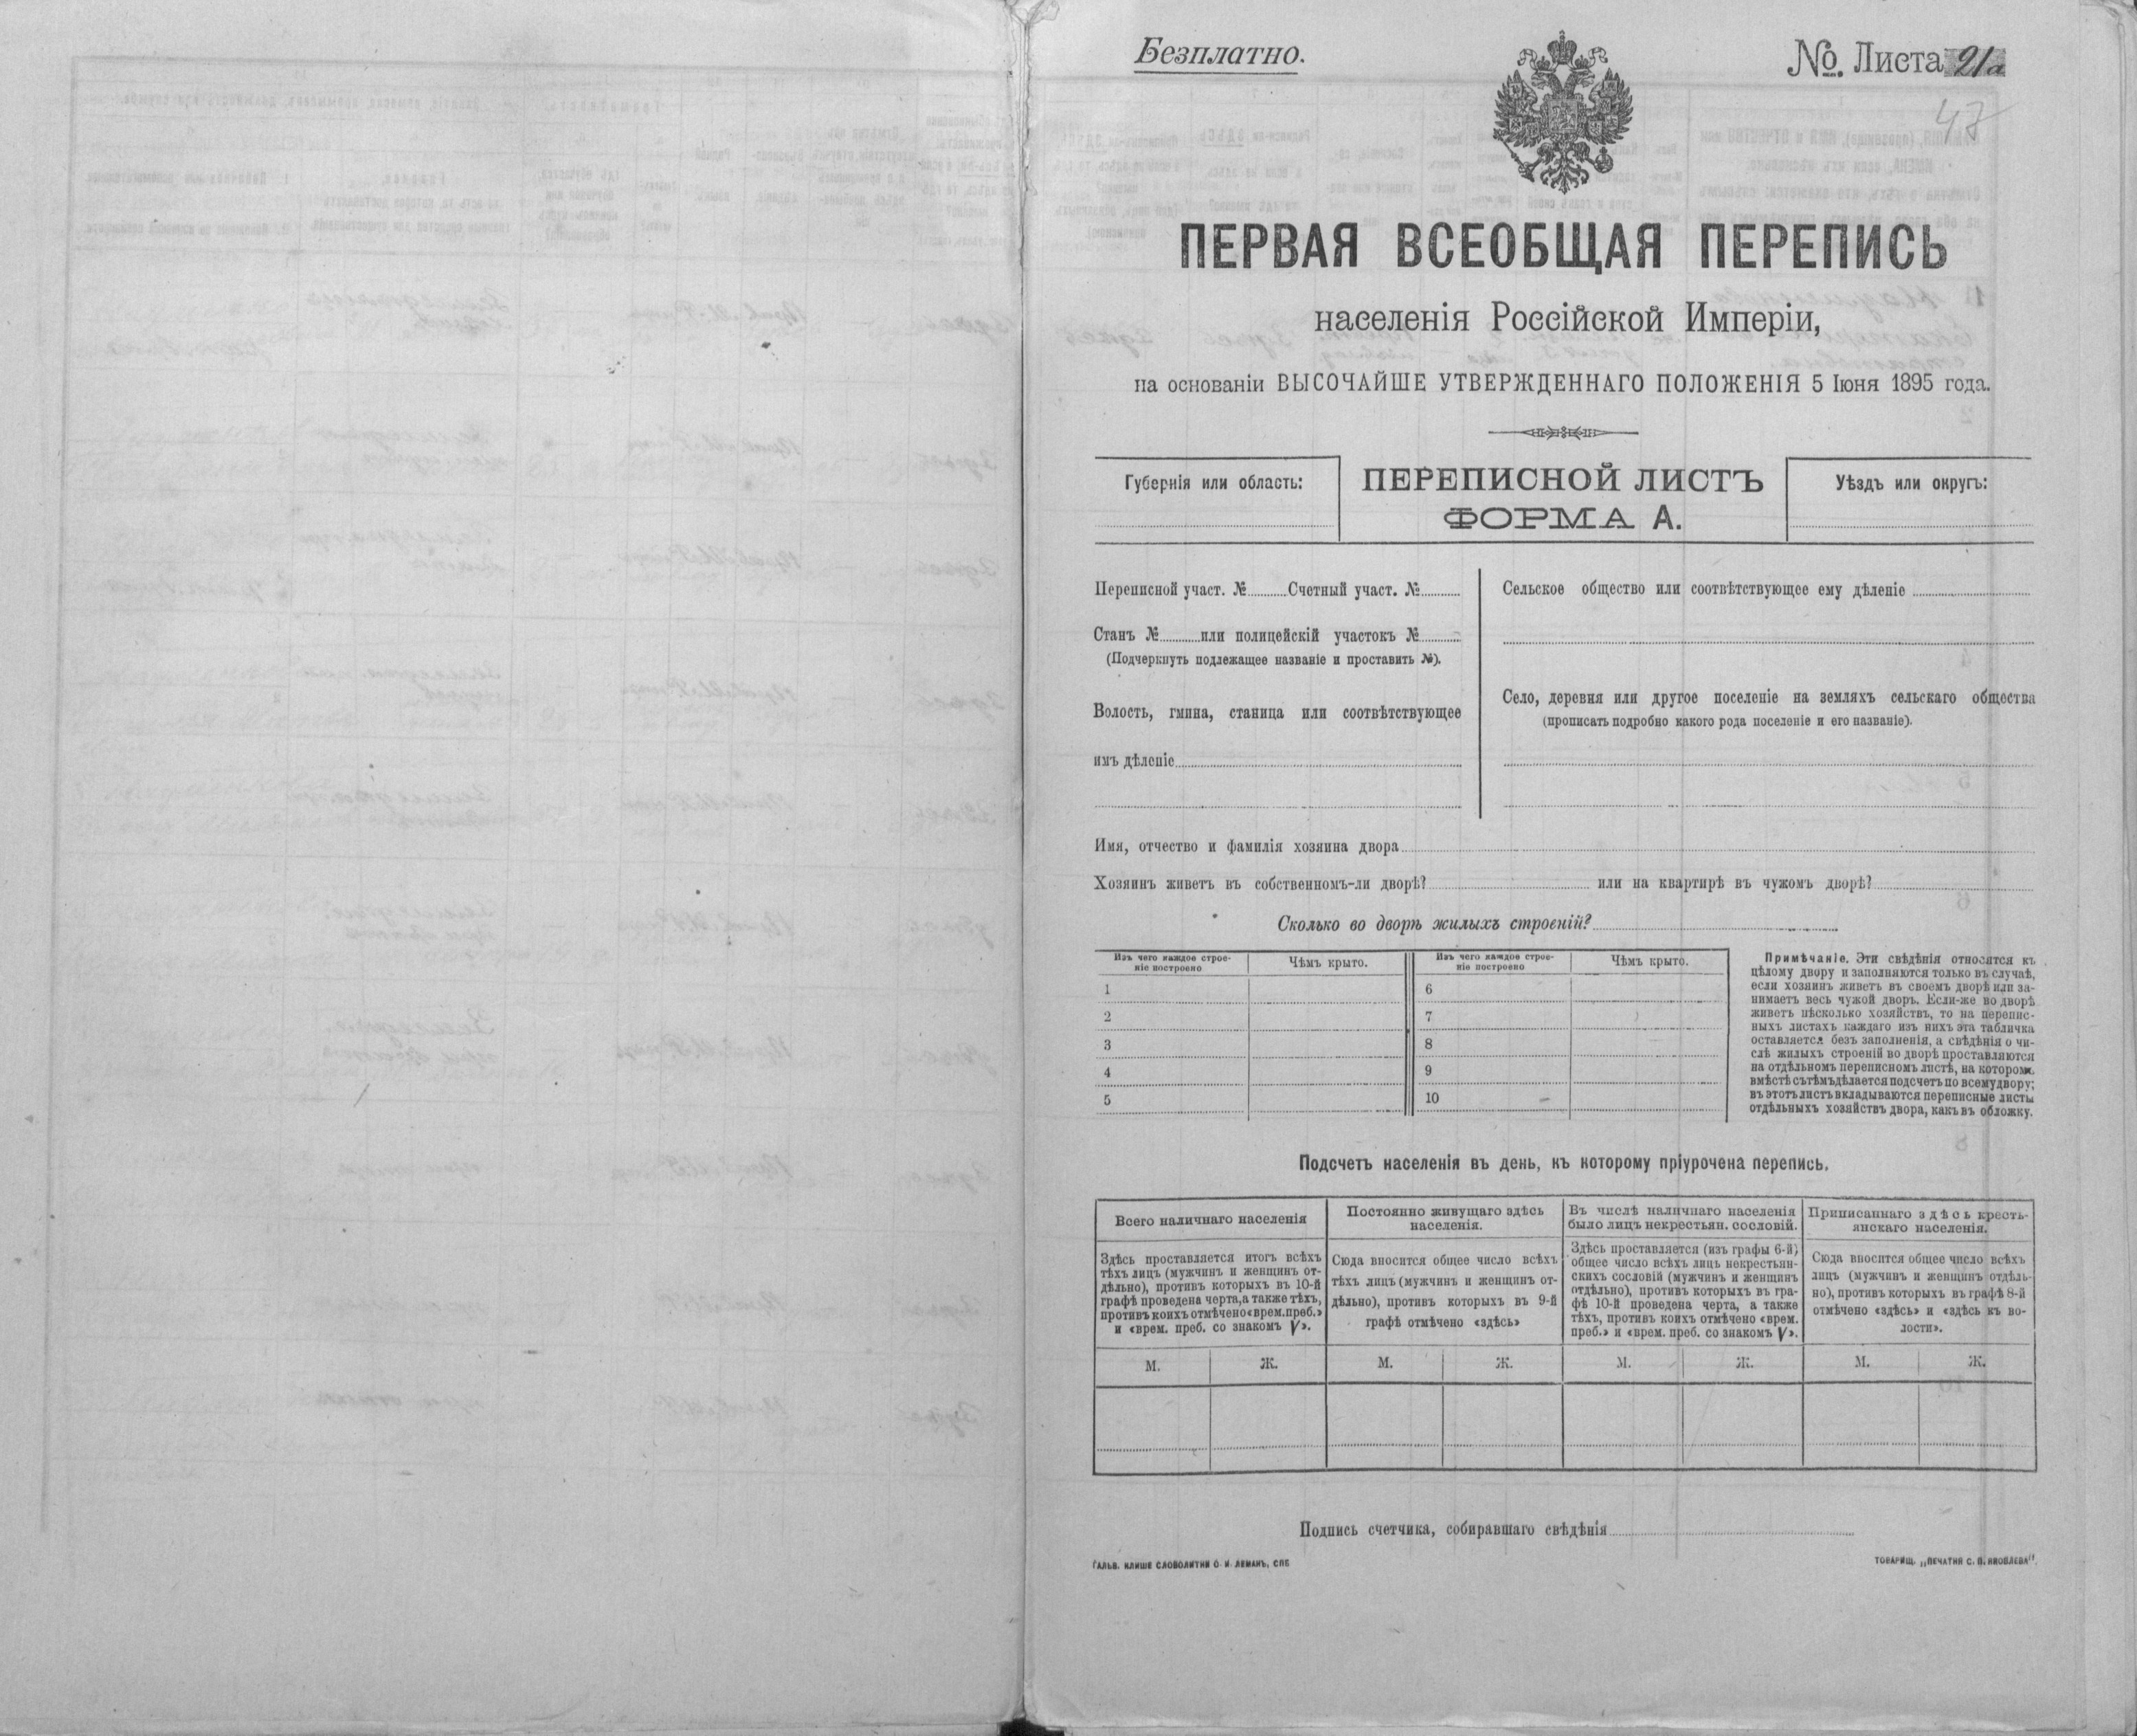 Безплатно.
№ Листа 21а
47
ПЕРВАЯ ВСЕОБЩАЯ ПЕРЕПИСЬ
населенія Россійской Имперіи,
на основаніи ВЫСОЧАЙШЕ УТВЕРЖДЕННАГО ПОЛОЖЕНІЯ 5 Іюня 1895 года.
Губернія или область:
ПЕРЕПИСНОЙ ЛИСТЪ
ФОРМА А.
Уѣздъ или округъ:
Переписной участ. № Счетный участ. №
Станъ № или полицейскій участокъ №
(Подчеркнуть подлежащее названіе и проставить №).
Волость, гмина, станица или соотвѣтствующее
имъ дѣленіе
Сельское общество или соотвѣтствующее ему дѣленіе
Село, деревня или другое поселеніе на земляхъ сельскаго общества
(прописать подробно какого рода поселеніе и его названіе).
Имя, отчество и фамилія хозяина двора
Хозяинъ живетъ въ собственномъ-ли дворѣ? или на квартирѣ въ чужомъ дворѣ?
Сколько во дворѣ жилыхъ строеній?
Изъ чего каждое строе-
ніе построено
Чѣмъ крыто.
Изъ чего каждое строе-
ніе построено
Чѣмъ крыто.
1
6
2
7
3
8
4
9
5
10
Примѣчаніе. Эти свѣдѣнія относятся къ
цѣлому двору и заполняются только въ случаѣ,
если хозяинъ живетъ въ своемъ дворѣ или за-
нимаетъ весь чужой дворъ. Если-же во дворѣ
живетъ нѣсколько хозяйствъ, то на перепис-
ныхъ листахъ каждаго изъ нихъ эта табличка
оставляется безъ заполненія, а свѣдѣнія о чи-
слѣ жилыхъ строеній во дворѣ проставляются
на отдѣльномъ переписномъ листѣ, на которомъ
вмѣстѣ съ тѣмъ дѣлается подсчетъ по всему двору;
въ этотъ листъ вкладываются переписные листы
отдѣльныхъ хозяйствъ двора, какъ въ обложку.
Подсчетъ населенія въ день, къ которому пріурочена перепись.
Всего наличнаго населенія
Постоянно живущаго здѣсь
населенія.
Въ числѣ наличнаго населенія
было лицъ некрестьян. сословій.
Приписаннаго здѣсь кресть-
янскаго населенія.
Здѣсь проставляется итогъ всѣхъ
тѣхъ лицъ (мужчинъ и женщинъ от-
дѣльно), противъ которыхъ въ 10-й
графѣ проведена черта, а также тѣхъ,
противъ коихъ отмѣчено «врем. преб.»
и «врем. преб. со знакомъ V».
Сюда вносится общее число всѣхъ
тѣхъ лицъ (мужчинъ и женщинъ от-
дѣльно), противъ которыхъ въ 9-й
графѣ отмѣчено «здѣсь»
Здѣсь проставляется (изъ графы 6-й)
общее число всѣхъ лицъ некрестьян-
скихъ сословій (мужчинъ и женщинъ
отдѣльно), противъ которыхъ въ гра-
фѣ 10-й проведена черта, а также
тѣхъ, противъ коихъ отмѣчено «врем.
преб.» и «врем. преб. со знакомъ V».
Сюда вносится общее число всѣхъ
лицъ (мужчинъ и женщинъ отдѣль-
но), противъ которыхъ въ графѣ 8-й
отмѣчено «здѣсь» и «здѣсь къ во-
лости».
М. Ж. М. Ж. М. Ж. М. Ж.
Подпись счетчика, собиравшаго свѣдѣнія
ГАЛЬВ. КЛИШЕ СЛОВОЛИТНИ О. И. ЛЕМАНЪ, СПБ
ТОВАРИЩ. „ПЕЧАТНЯ С. П. ЯКОВЛЕВА".